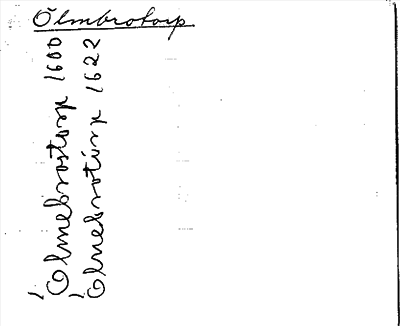 Ölmbrotorp
Ólmebrostorp 1600
Ólnebrotorp 1622